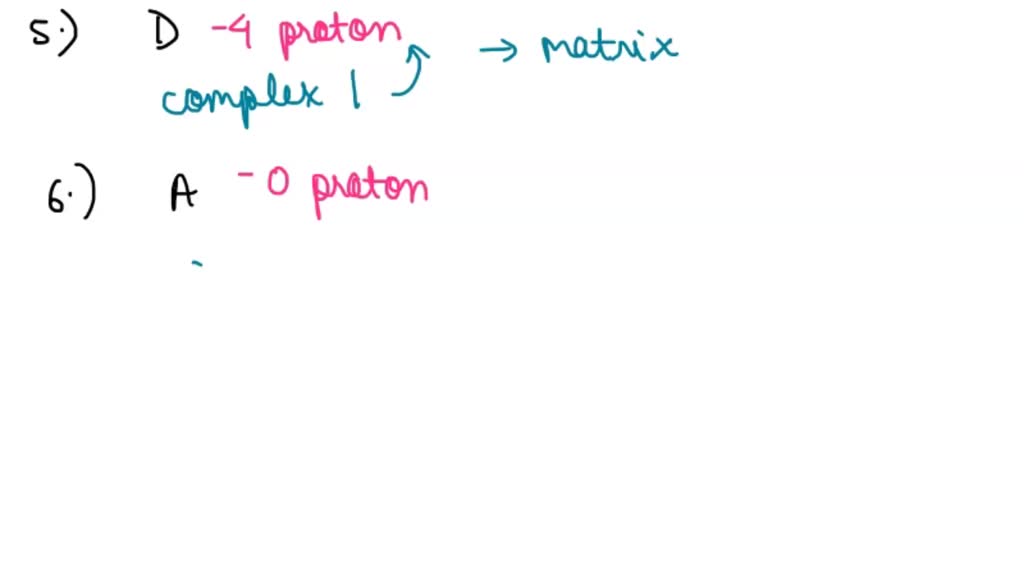 5.) D -4 proton → matrix
complex 1
6.) A -0 proton